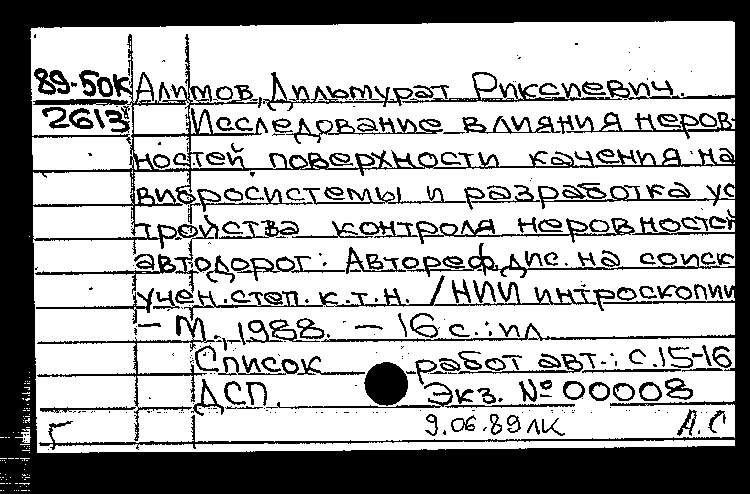 89-50К Алимов, Дильмурат Риксиевич.
2613 Исследование влияния неров-
ностей поверхности качения на
вибросистемы и разработка ус
тройства контроля неровностей
автодорог: Автореф. дис. на соиск
учен. степ. к.т.н. / НИИ интроскопии
– М., 1988. – 16 с.: ил
Список работ авт.: с. 15-16
ДСП. Экз. № 00008
9.06.89 ЛК А.С
5